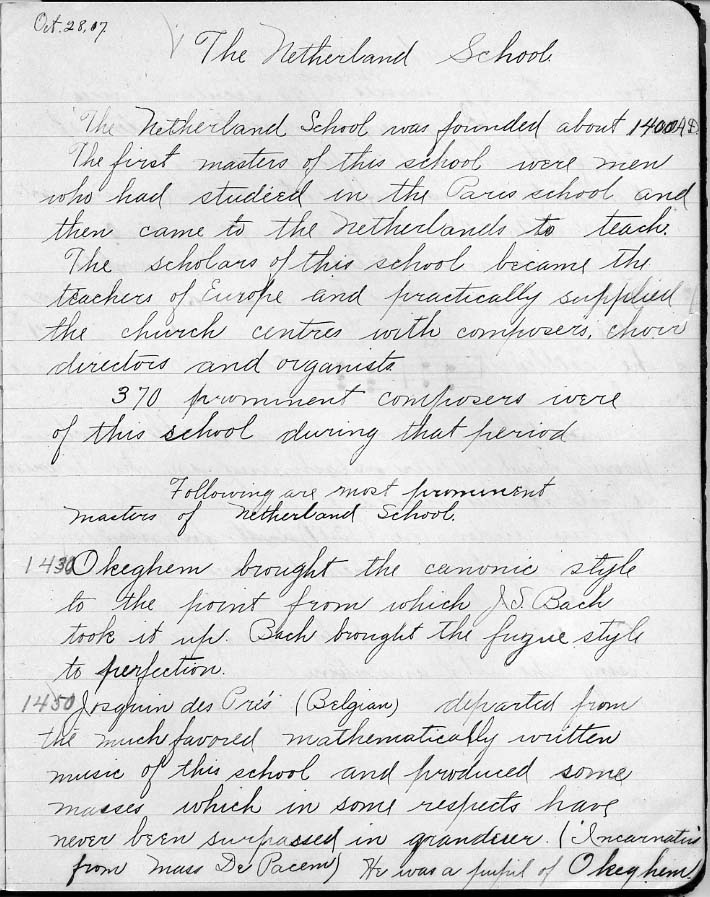 Oct. 28, 07.
√ The Netherland School
The Netherland School was founded about 1400 A.D.
The first masters of this school were men
who had studied in the Paris school and
then came to the Netherlands to teach.
The scholars of this school became the
teachers of Europe and practically supplied
the church centres with composers, choir
directors and organists
370 prominent composers were
of this school during that period
Following are most prominent
masters of Netherland School.
1430 Okeghem brought the canonic style
to the point from which J.S. Bach
took it up. Bach brought the fugue style
to perfection.
1450 Josquin des Prés (Belgian) departed from
the much favored mathematically written
music of this school and produced some
masses which in some respects have
never been surpassed in grandeur. ("Incarnatus
from Mass De Pacem) He was a pupil of Okeghem.